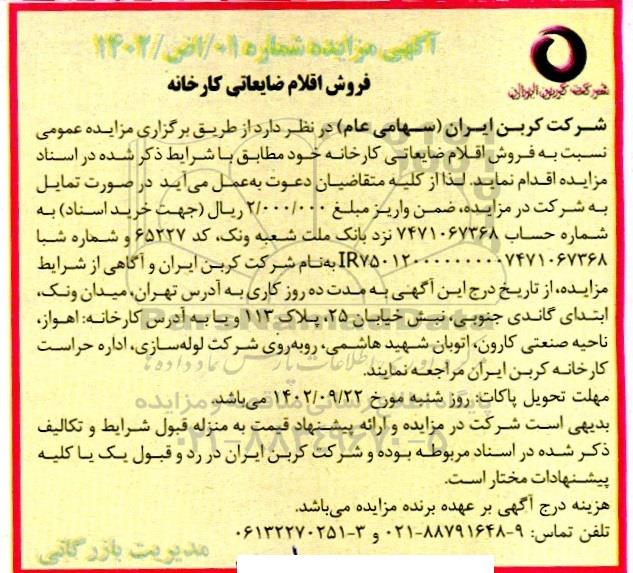 آگهی مزایده شماره ۰۱/ض/۱۴۰۲
شرکت کربن ایران
فروش اقلام ضایعاتی کارخانه
شرکت کربن ایران (سهامی عام) در نظر دارد از طریق برگزاری مزایده عمومی
نسبت به فروش اقلام ضایعاتی کارخانه خود مطابق با شرایط ذکر شده در اسناد
مزایده اقدام نماید. لذا از کلیه متقاضیان دعوت به‌عمل می‌آید در صورت تمایل
به شرکت در مزایده، ضمن واریز مبلغ ۲/۰۰۰/۰۰۰ ریال (جهت خرید اسناد) به
شماره حساب ۷۴۷۱۰۶۷۳۶۸ نزد بانک ملت شعبه ونک، کد ۶۵۲۲۷ و شماره شبا
IR۷۵۰۱۲۰۰۰۰۰۰۰۰۰۰۷۴۷۱۰۶۷۳۶۸ به‌نام شرکت کربن ایران و آگاهی از شرایط
مزایده، از تاریخ درج این آگهی به مدت ده روز کاری به آدرس تهران، میدان ونک،
ابتدای گاندی جنوبی، نبش خیابان ۲۵، پلاک ۱۱۳ و یا به آدرس کارخانه: اهواز،
ناحیه صنعتی کارون، اتوبان شهید هاشمی، روبه‌روی شرکت لوله‌سازی، اداره حراست
کارخانه کربن ایران مراجعه نمایند.
مهلت تحویل پاکات: روز شنبه مورخ ۱۴۰۲/۰۹/۲۲ می‌باشد.
بدیهی است شرکت در مزایده و ارائه پیشنهاد قیمت به منزله قبول شرایط و تکالیف
ذکر شده در اسناد مربوطه بوده و شرکت کربن ایران در رد و قبول یک یا کلیه
پیشنهادات مختار است.
هزینه درج آگهی بر عهده برنده مزایده می‌باشد.
تلفن تماس: ۹-۸۸۷۹۱۶۴۸-۰۲۱ و ۳-۰۶۱۳۲۲۷۰۲۵۱
مدیریت بازرگانی
ParsNamadData
پایگاه اطلاع رسانی مناقصه و مزایده
۰۲۱-۸۸۳۴۹۶۷۰-۵